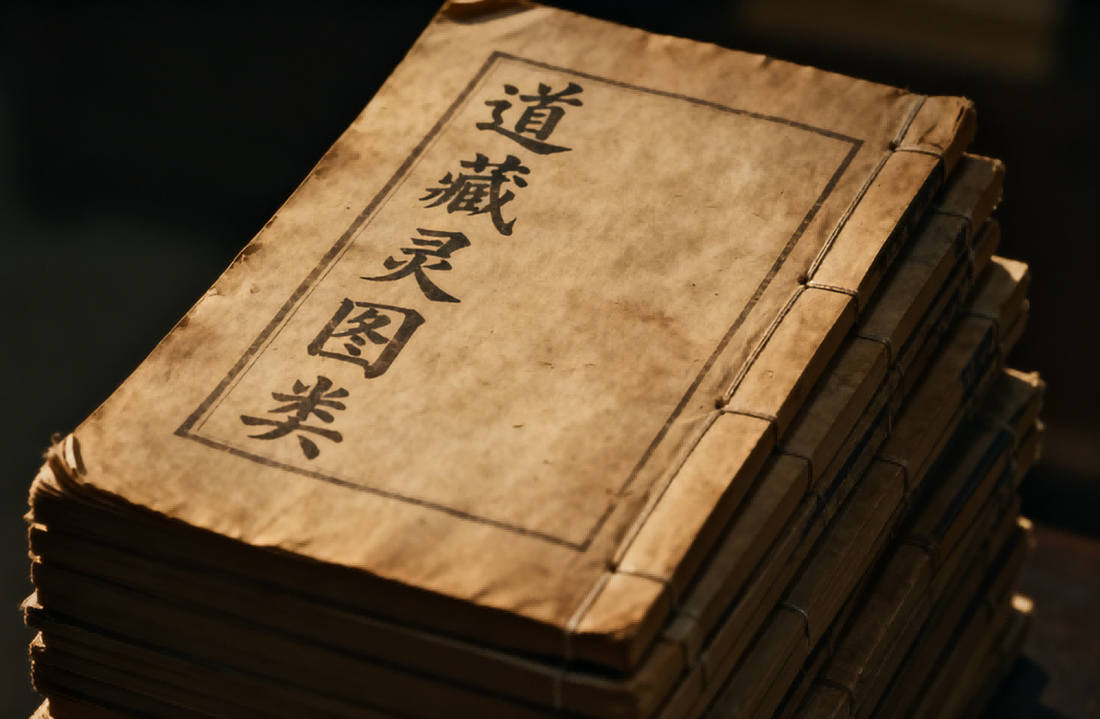 道藏灵图类